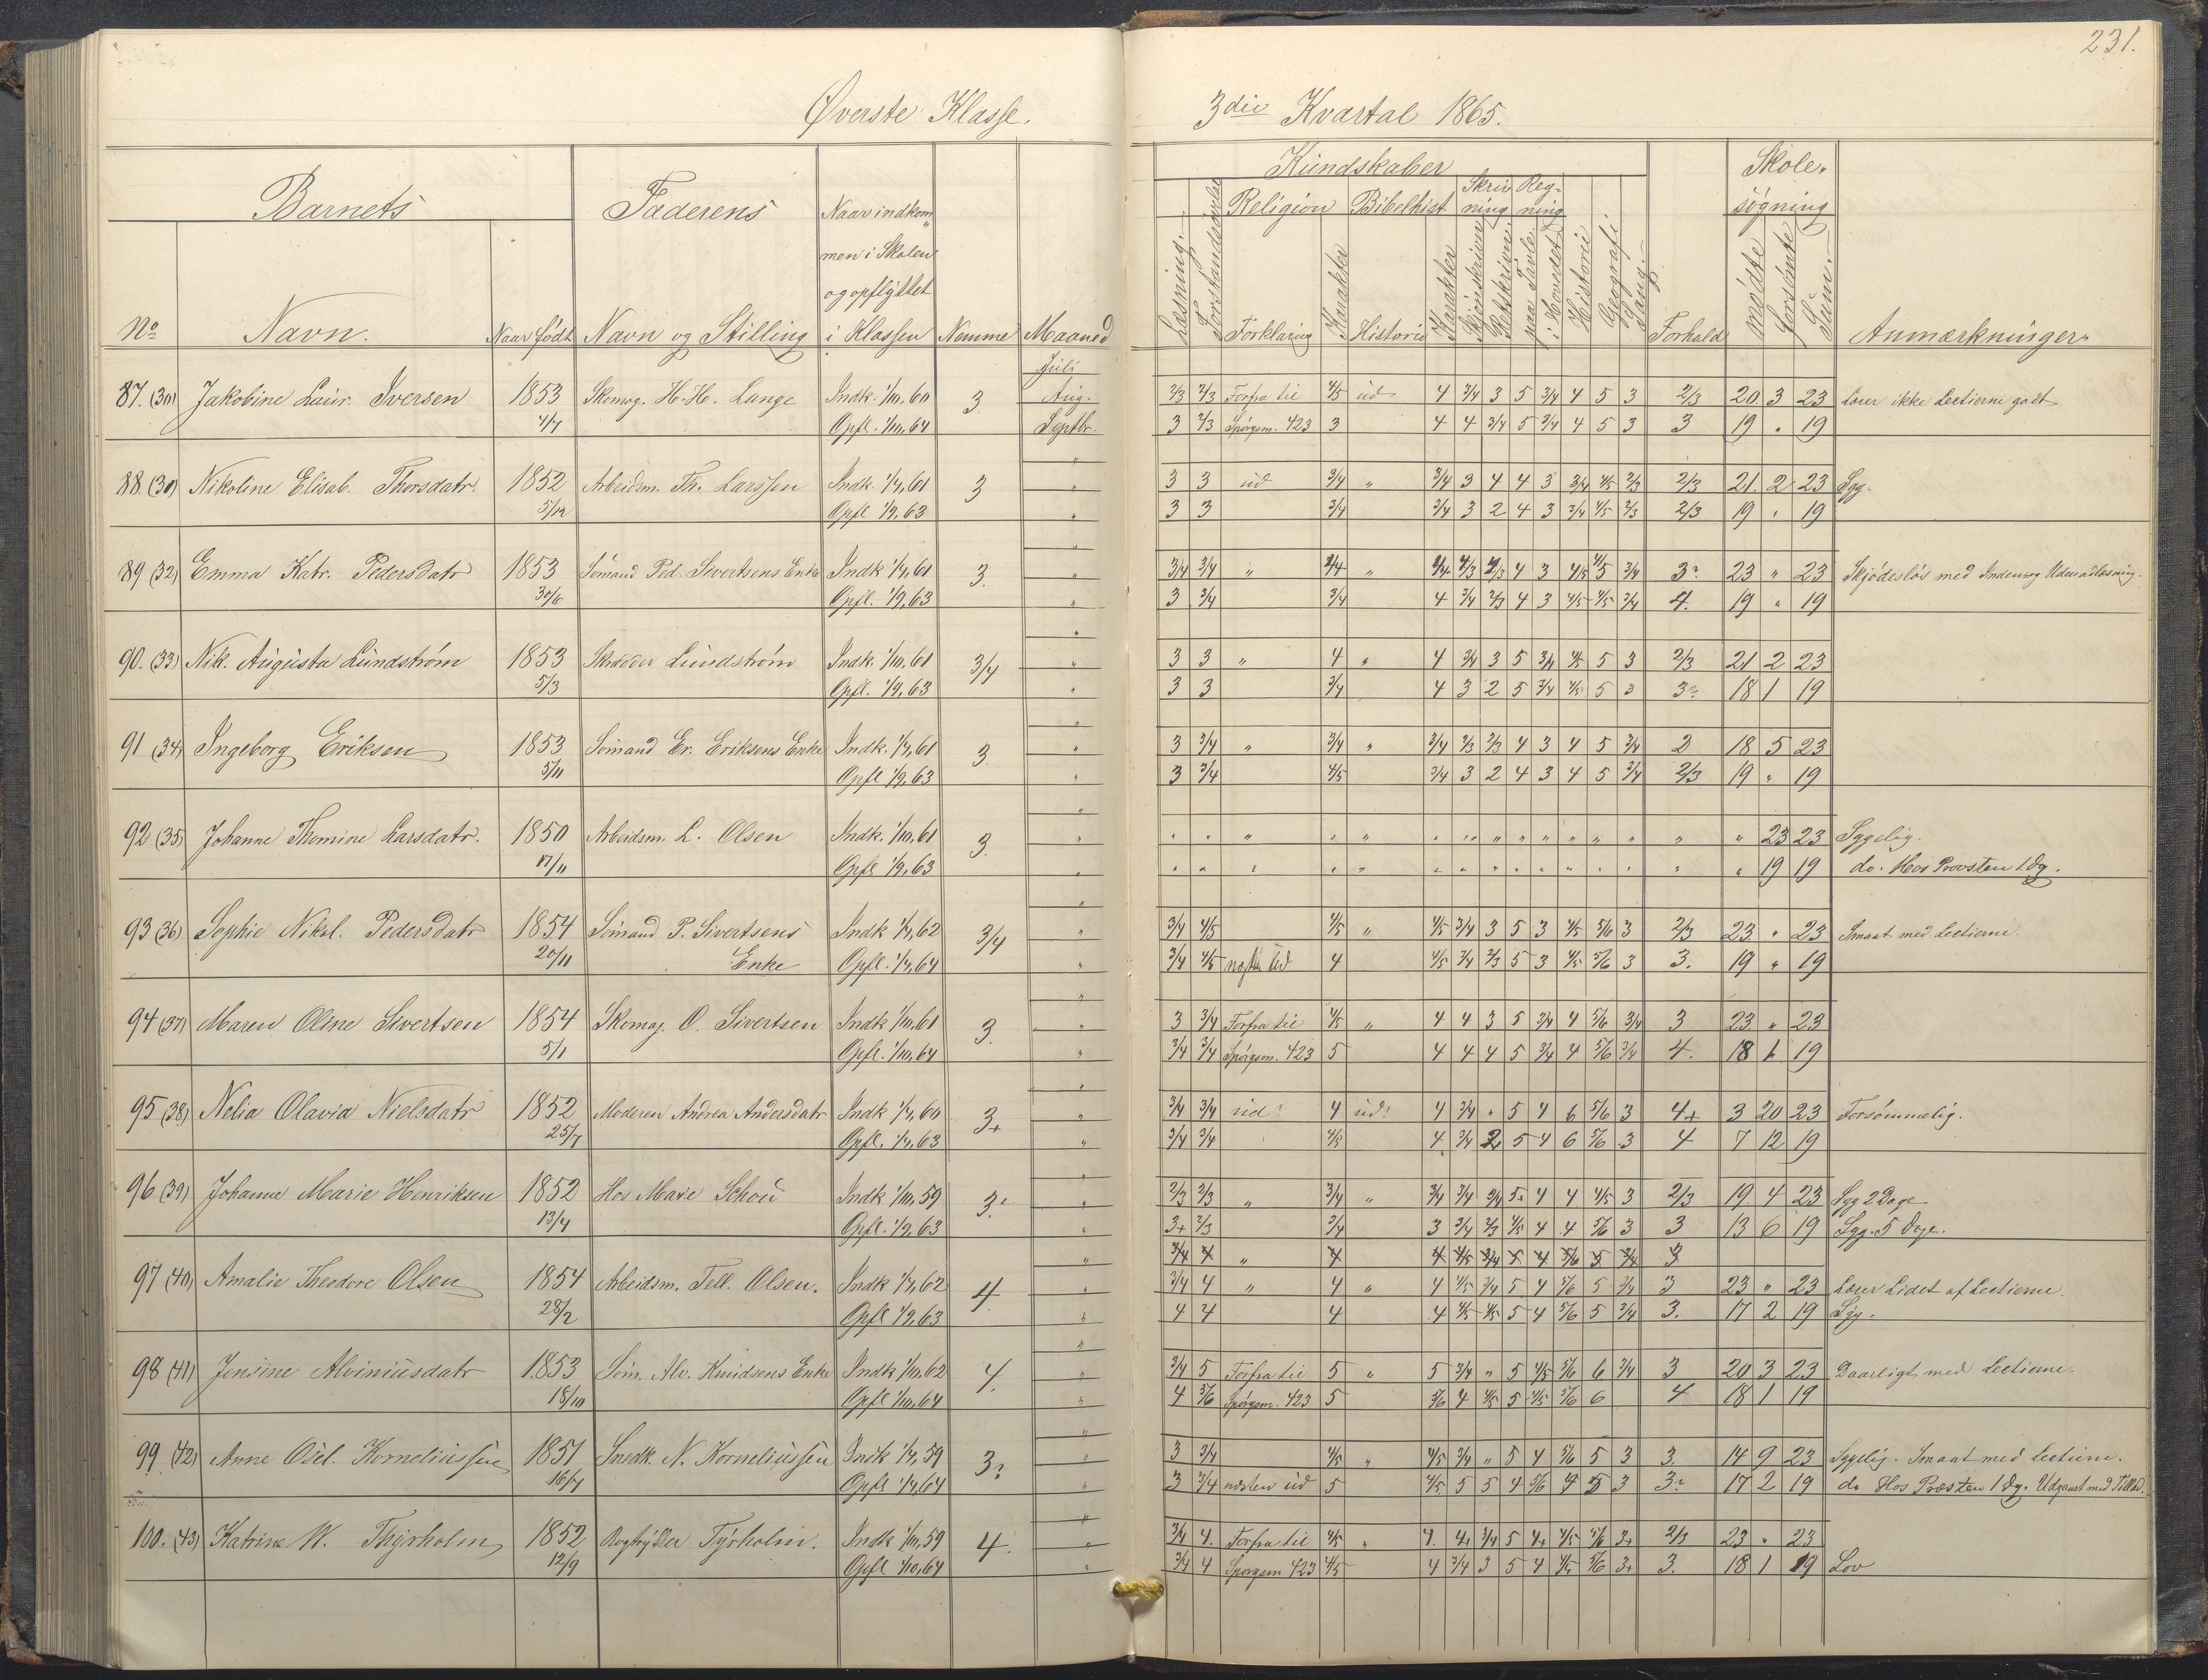 231.
Øverste Klasse. 3die Kvartal 1865.
Barnets Faderens Naar indkommen i Skolen og opflyttet i Klassen Nemme Maaned Kundskaber Forhold Skolesøgning Anmærkninger
No Navn. Naar født Navn og Stilling
Læsning. Forstandsøvelse Religion Bibelhist Skrivning Regning Historie Geografi Sang.
Forklaring Karakter Historie Karakter Skjönskrivn Retskrivn. paa Tavle. i Hovedet
mødte forsömte Sum.
Juli
87. (30) Jakobine Laur. Iversen 1853 Skomag. H. H. Lange Indk. 1/10, 60 3 Aug. 2/3 2/3 Forfra til 4/5 ud 4 3/4 3 5 3/4 4 5 3 2/3 20 3 23 Lærer ikke Lectierne godt
4/4 Opfl. 1/10, 64 Septbr. 3 2/3 Spörgsm. 423 3 4 4 3/4 5 3/4 4 5 3 3 19 " 19
88. (31) Nikoline Elisab. Thorsdatr. 1852 Arbeidsm. Th. Larssen Indk. 1/4, 61 3 " 3 3 ud 3/4 " 3/4 3 4 4 3 3/4 4/5 2/3 2/3 21. 2 23 Syg.
5/12 Opfl 1/9, 63 " 3 3 3/4 3/4 3 2 4 3 3/4 4/5 2/3 2/3 19 " 19
89 (32) Emma Katr. Pedersdatr 1853 Sömand Ped. Sivertsens Enke Indk 1/4, 61 3. " 3/4 3/4 " 3/4 " 4 3 4/5 4/5 3/4 3? 23 " 23 Skjødesløs med
30/6 Opfl. 1/9, 63 " 3 3/4 3/4 4 3/4 2/3 4 3 4/5 4/5 3/4 4. 19 " 19
90. (33) Nik. Augusta Lundstrøm 1853 Skrædder Lundstrøm Indk. 1/10, 61 3/4 " 3 3 " 4 " 4 3/4 3 5 3/4 4/5 5 3 2/3 21 2 23
5/3 Opfl. 1/9, 63 " 3 3 3/4 4 3 2 5 3/4 4/5 5 3 3? 18 1 19
91 (34) Ingeborg Eriksen 1853 Sömand Er. Eriksens Enke Indk. 1/4, 61 3. " 3 3/4 " 3/4 " 3/4 2/3 2/3 4 3 4 5 3/4 2 18 5 23
5/11 Opfl 1/9, 63 " 3 3/4 4/5 3/4 3 2 4 3 4 5 3/4 2/3 19 " 19
92 (35) Johanne Thomine Larsdatr. 1850 Arbeidsm. L. Olsen Indk. 1/10, 61 3. " " " " " " " " " " " " " " " " 23 23 Sygelig.
17/11 Opfl 1/9, 63 " " " " " " " " " " " " " " " " " 19 19 do. Hos Provsten 1 Dg.
93 (36) Sophie Nikol. Pedersdatr 1854 Sömand P. Sivertsens Indk 1/4, 62 3/4 " 3/4 4/5 4/5 " 4/5 3/4 3 5 3 4/5 5/6 3 2/3 23 " 23 Smaat med Lectierne.
20/11 Enke Opfl. 1/4, 64 " 3/4 4/5 næsten ud 4 4/5 3/4 2/3 5 3 4/5 5/6 3 3. 19 " 19
94 (37) Maren Oline Sivertsen 1854 Skomag. O. Sivertsen Indk 1/10, 61 3. " 3 3/4 Forfra til 4/5 " 4 4 3 5 3/4 4 5/6 3/4 3 23 " 23
5/1 Opfl. 1/10, 64 " 3/4 3/4 Spörgsm. 423 5 4 4 4 5 3/4 4 5/6 3/4 4. 18 1 19
95 (38) Nelia Olavia Nielsdatr 1852 Moderen Andrea Andersdatr Indk 1/4, 60 3+ " 3/4 3/4 ud? 4 ud? 4 3/4 " 5 4 6 5/6 3 4+ 3 20 23 Forsömmelig.
25/7 Opfl. 1/4, 63 " 3/4 3/4 4/5 4 3/4 2 5 4 6 5/6 3 4 7 12 19
96 (39) Johanne Marie Henriksen 1852 Hos Maxe Schou Indk 1/10, 59 3? " 2/3 2/3 " 3/4 " 3/4 3/4 3/4 5. 4 4 4/5 3 2/3 19 4 23 Syg 2 Dage
13/4 Opfl. 1/9, 63 " 3+ 2/3 3/4 3 3/4 2/3 4/5 4 4 5/6 3 3 13 6 19 Syg. 5 Dage.
97 (40) Amalie Theodore Olsen 1854 Arbeidsm. Tell. Olsen. Indk 1/4, 62 4. " 3/4 4 " 4 " 4 4/5 3/4 5 4 5/6 5 3/4 3 23 " 23 Lærer Lidet af Lectierne.
28/2 Opfl 1/9, 63 " 4 4 4 4 4/5 4/5 5 4 5/6 5 3/4 3. 17 2 19 Syg.
98 (41) Jensine Alviniusdatr 1853 Söm. Alv. Knudsens Enke Indk 1/10, 62 4. " 3/4 5 Forfra til 5 " 5 3/4 " 5 4/5 5/6 6 3/4 3 20 3 23 Daarligt med Lectierne.
18/10 Opfl 1/10, 64 " 4 5/6 Spörgsm. 423 5 5/6 4 4/5 5 4/5 5/6 6 4 18 1 19
99 (42) Anne Osel. Korneliussen 1851 Snedk. N. Korneliussen Indk 1/4, 59 3? " 3 3/4 4/5 " 4/5 3/4 " 5 4 5/6 5 3 3. 14 9 23 Sygelig. Smaat med Lectierne.
16/4 Opfl 1/4, 64 " 3 3/4 næsten ud 5 4/5 5 5 4 5/6 4 5 3 3? 17 2 19 do Hos Præsten 1 Dg. Udgaaet med
100. (43) Katrine W. Thyrholm 1852 Tyrholm. Indk 1/10, 59 4. " 3/4 4. Forfra til 4/5 " 4. 4+ 3/4 5 4+ 4/5 5/6 3+ 2/3 23 " 23
12/9 Opfl 1/10, 64 " 3/4 4 Spörgsm 423 4/5 4 3/4 3 5 4 4/5 5/6 3+ 3. 18 1 19 Lov